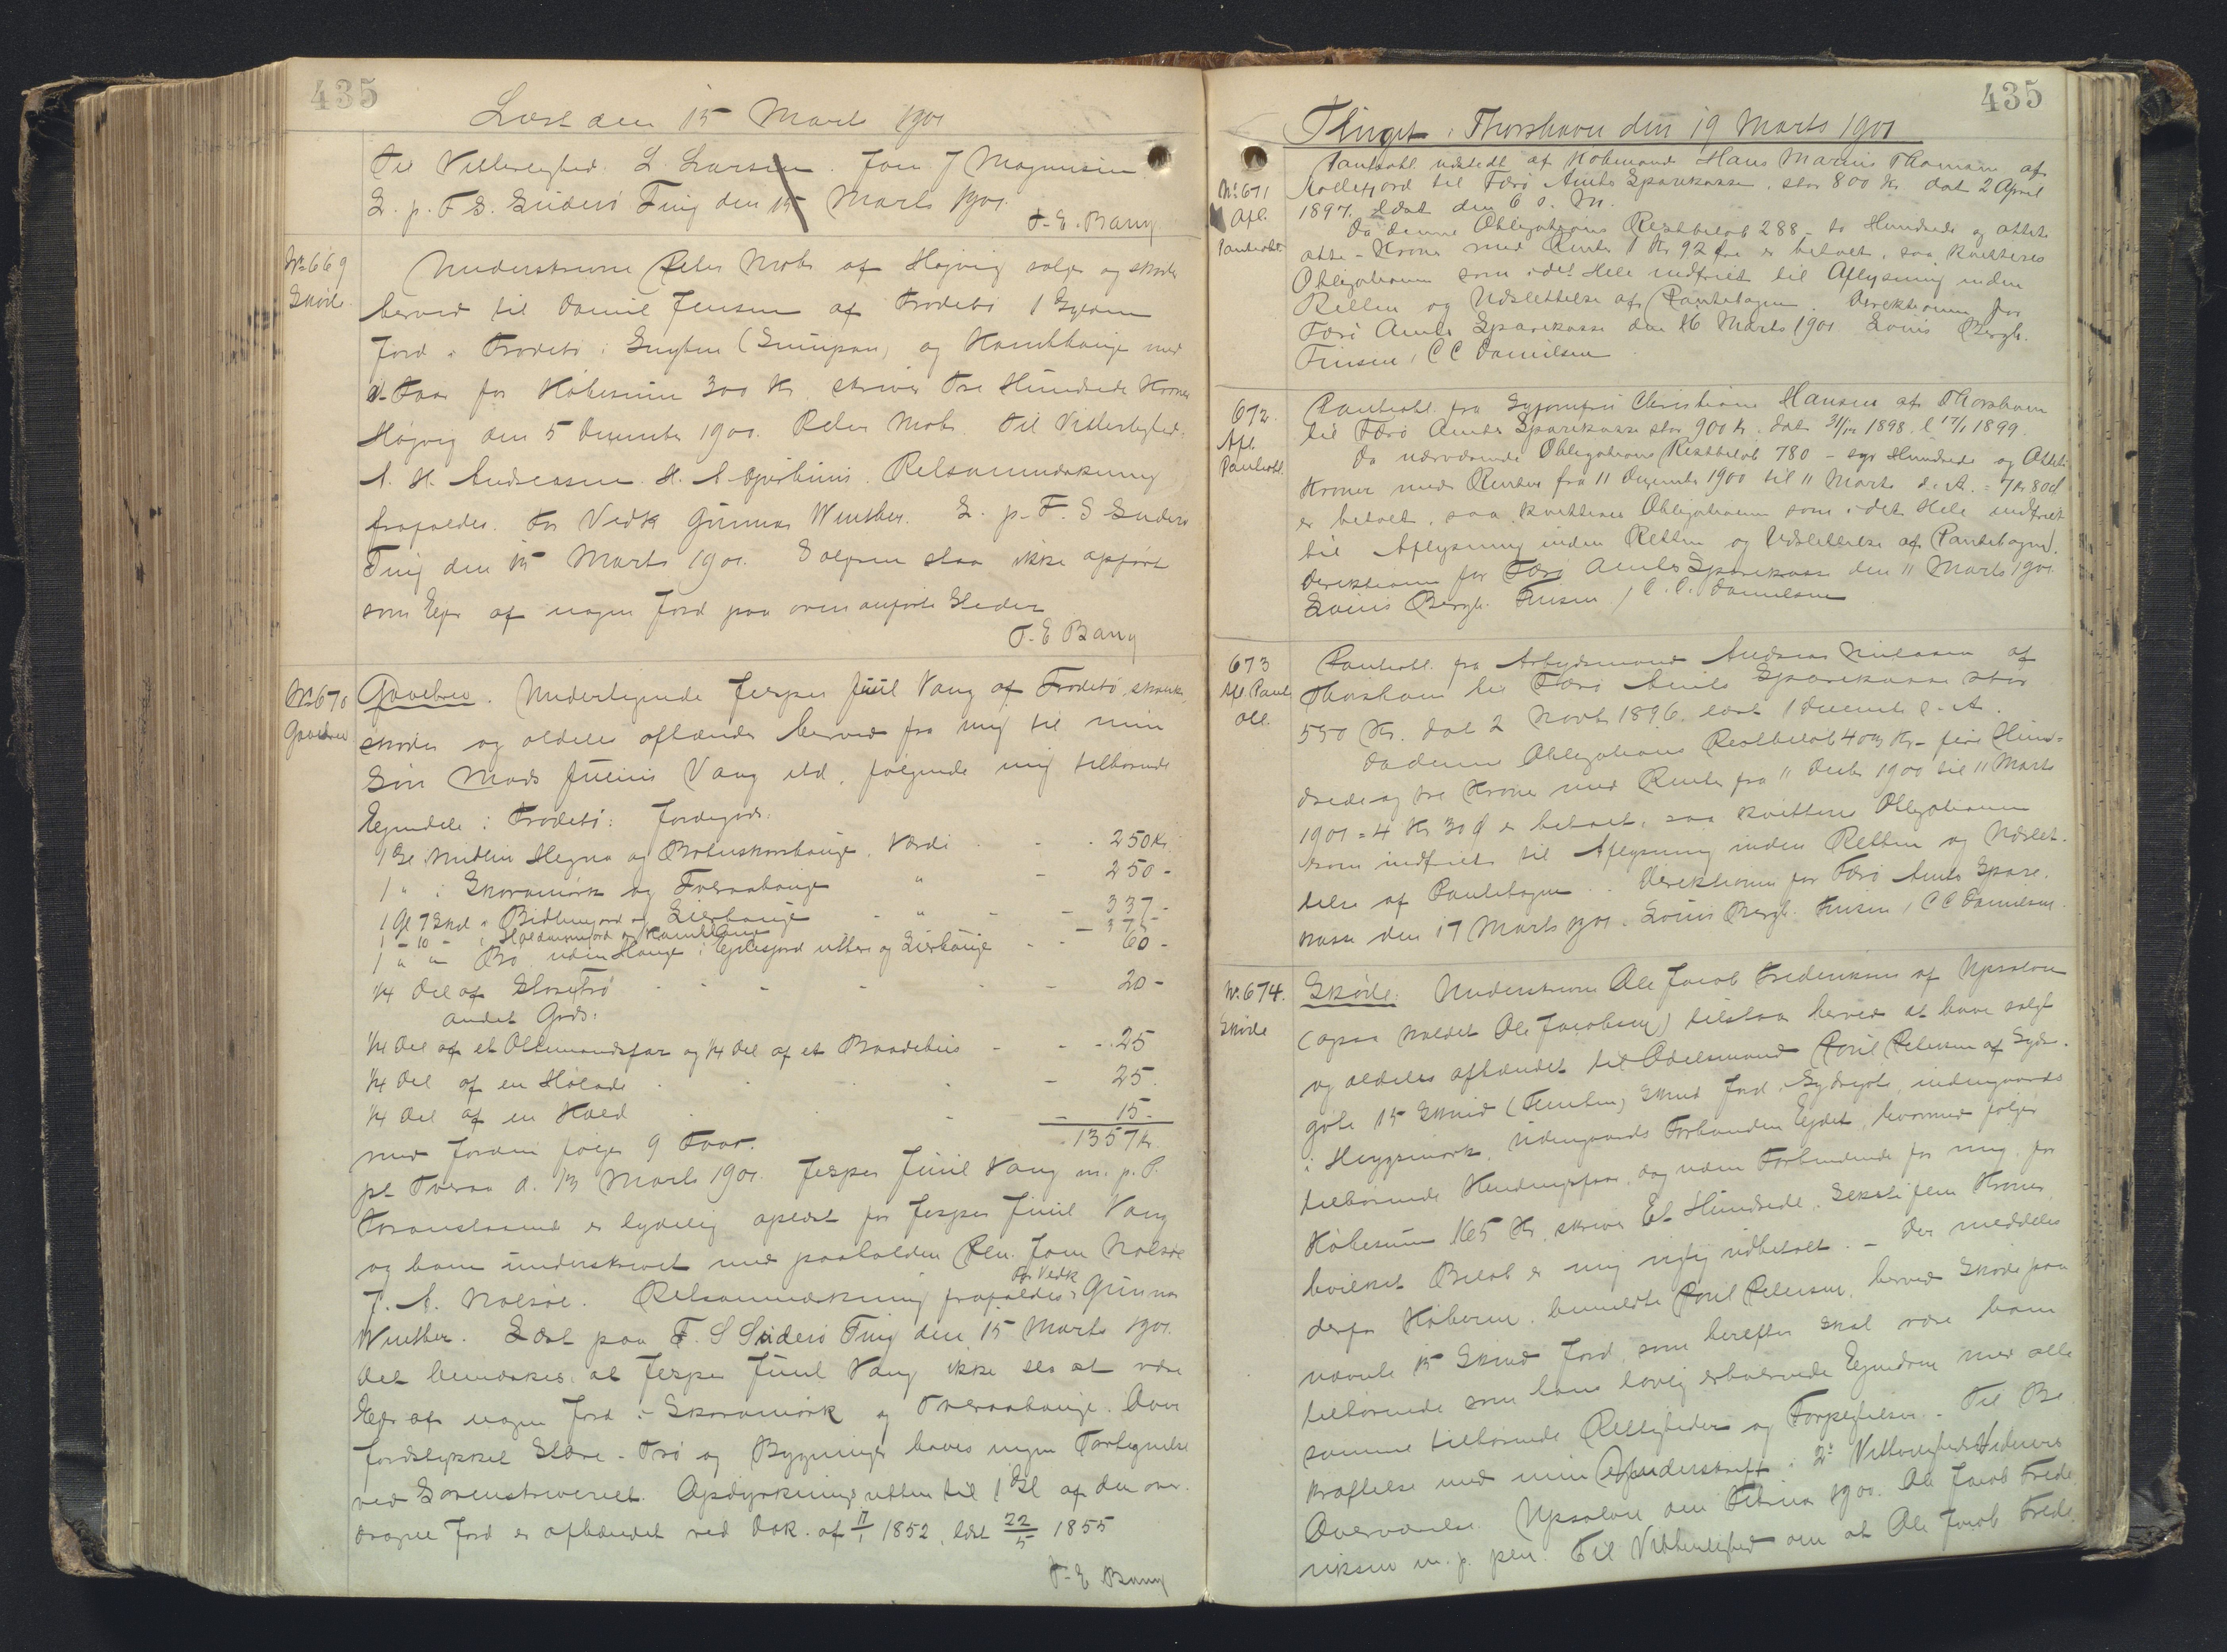 435
Læst den 15 Marts 1901
Til Vitterlighed: L. Larsen. Joen J Magnusen
L. p. F. S. Suderö Ting den 15 Marts 1901.
T. E. Bang
No 669
Skøde
Underskrevne Peter Mohr af Højvig sælger og skøder
herved til Daniel Jensen af Frodebø 1 Gylden
Jord i Frodebø i og Kambhauge med
Faar for Købesum 300 Kr skriver Tre Hundrede Kroner
Højvig den 5 December 1900. Peter Mohr. Til Vitterlighed:
A. H. Andreassen. H. A. Djurhuus. Retsanmærkning
frafaldes. For Vedk Gunnar Winther. L. p. F. S Suderø
Ting den 15 Marts 1901. Sælgeren staar ikke opført
som Ejer af nogen Jord paa ovenanførte Steder
T. E Bang
No 670
Gavebrev
Gavebrev. Undertegnede Jesper Juul Vang af Frodebø, skænker
skøder og aldeles afhænder herved fra mig til min
Søn Mads Julius Vang ibd. følgende mig tilhørende
Ejendele i Frodebø: Jordegods:
1 Gl i Midlun Hegna og Værdi - - 250 Kr
1 " i Skoramørk og Tveraahauge " - 250 -
1 Gl 7 Skd i og Lierhauge - " - - 337 -
1 - 10 - i og Kambhauge - 375 -
1 " " Bø uden Hauge i uttere og Lierhauge - - 60 -
1/4 Del af Store Trø - - - - - 20 -
Andet Gods:
1/4 Del af et Ottemandsfar og 1/4 Del af et Baadehus - - - 25
1/4 Del af en Hølade - - - - 25.
1/4 Del af en - - - 15 -
1357 Kr.
med Jorden følger 9 Faar.
pt Tveraa d. 13 Marts 1901. Jesper Juul Vang m. p. P.
Foranstaaende er lydelig oplæst for Jesper Juul Vang
og ham underskrevet med paaholden Pen. Joen Nolsøe
J. A. Nolsøe. Retsanmærkning frafaldes. For Vedk Gunnar
Winther. Læst paa F. S Suderö Ting den 15 Marts 1901.
Det bemærkes, at Jesper Juul Vang ikke ses at være
Ejer af nogen Jord i Skoramørk og Tveraahauge. Over
Jordstykket Store-Trø og Bygninger haves ingen Fortegnelse
ved Sorenskriveriet. Opdyrkningsretten til 1 Gl af den over-
dragne Jord er afhændet ved Dok. af 17/1 1852, læst 22/5 1855
T. E Bang
435
Thinget i Thorshavn den 19 Marts 1901
No 671
Afl.
Pantoblt
Pantobl. udstedt af Købmand Hans Marius Thomsen af
Kollefjord til Færø Amts Sparekasse, stor 800 Kr. dat 2 April
1897. læst den 6 s. M.
Da denne Obligations Restbeløb 288 - to Hundrede og ottete
otte - Kroner med Renter 1 Kr 92 Øre er betalt, saa kvitteres
Obligationen som i det Hele indfriet til Aflysning inden
Retten og Udslettelse af Pantebogen. Direktionen for
Færø Amts Sparekasse den 16 Marts 1901 Louis Bergh.
Finsen / C C Danielsen
672.
Afl.
Pantobl.
Pantobl. fra Syjomfru Christiane Hansen af Thorshavn
til Færø Amts Sparekasse stor 900 Kr. dat 31/12 1898. l 17/1 1899.
Da nærværende Obligations Restbeløb 780 - syv Hundrede og Otteti
Kroner med Renter fra 11 December 1900 til 11 Marts d. A. = 7 Kr 80 Ø
er betalt, saa kvitteres Obligationen som i det Hele indfriet
til Aflysning inden Retten og Udslettelse af Pantebogen.
Direktionen for Færø Amts Sparekasse den 11 Marts 1901
Louis Bergh. Finsen. / C. C. Danielsen
673
Afl. Pant
obl.
Pantobl. fra Arbejdsmand Andreas Nielsen af
Thorshavn til Færø Amts Sparekasse stor
550 Kr. dat 2 Novb 1896. læst 1 December s. A.
Da denne Obligations Restbeløb 403 Kr - fire Hun-
drede og tre Kroner med Renter fra 11 Decbr 1900 til 11 Marts
1901 = 4 Kr 30 Ø er betalt, saa kvitteres Obligationen
som indfriet til Aflysning inden Retten og Udslet-
telse af Pantebogen. Direktionen for Færø Amts Spare-
kasse den 17 Marts 1901. Louis Bergh. Finsen / C C Danielsen
No. 674.
Skøde
Skøde. Underskrevne Ole Jacob Frederiksen af Upsalon
(ogsaa kaldet Ole Jacobsen) tilstaar herved at have solgt
og aldeles afhændet til Odelsmand Poul Petersen af Sydre-
gøte 15 Skind (Femten) Skind Jord i Sydregøte indengaards
i Heyggsmørk, Udengaards Forbunden Eydet, hvormed følger
tilhørende Kendingsfaar, dog uden Forbindende for mig, for
Købesum 165 Kr, skriver Et Hundrede Seksti fem Kroner
hvilket Beløb er mig rigtig udbetalt. - Der meddeles
derfor Køberen, bemeldte Poul Petersen, herved Skøde paa
nævnte 15 Skind Jord, som herefter skal være ham
tilhørende som hans lovlig erhvervede Ejendom med alle
samme tilhørende Rettigheder og Forpligtelser. - Til Be
kræftelse med min Underskrift i 2de Vitterlighedsvidners
Overværelse. Upsalon den Februar 1900. Ole Jacob Frede
riksen m. p. pen. Til Vitterlighed om at Ole Jacob Frede